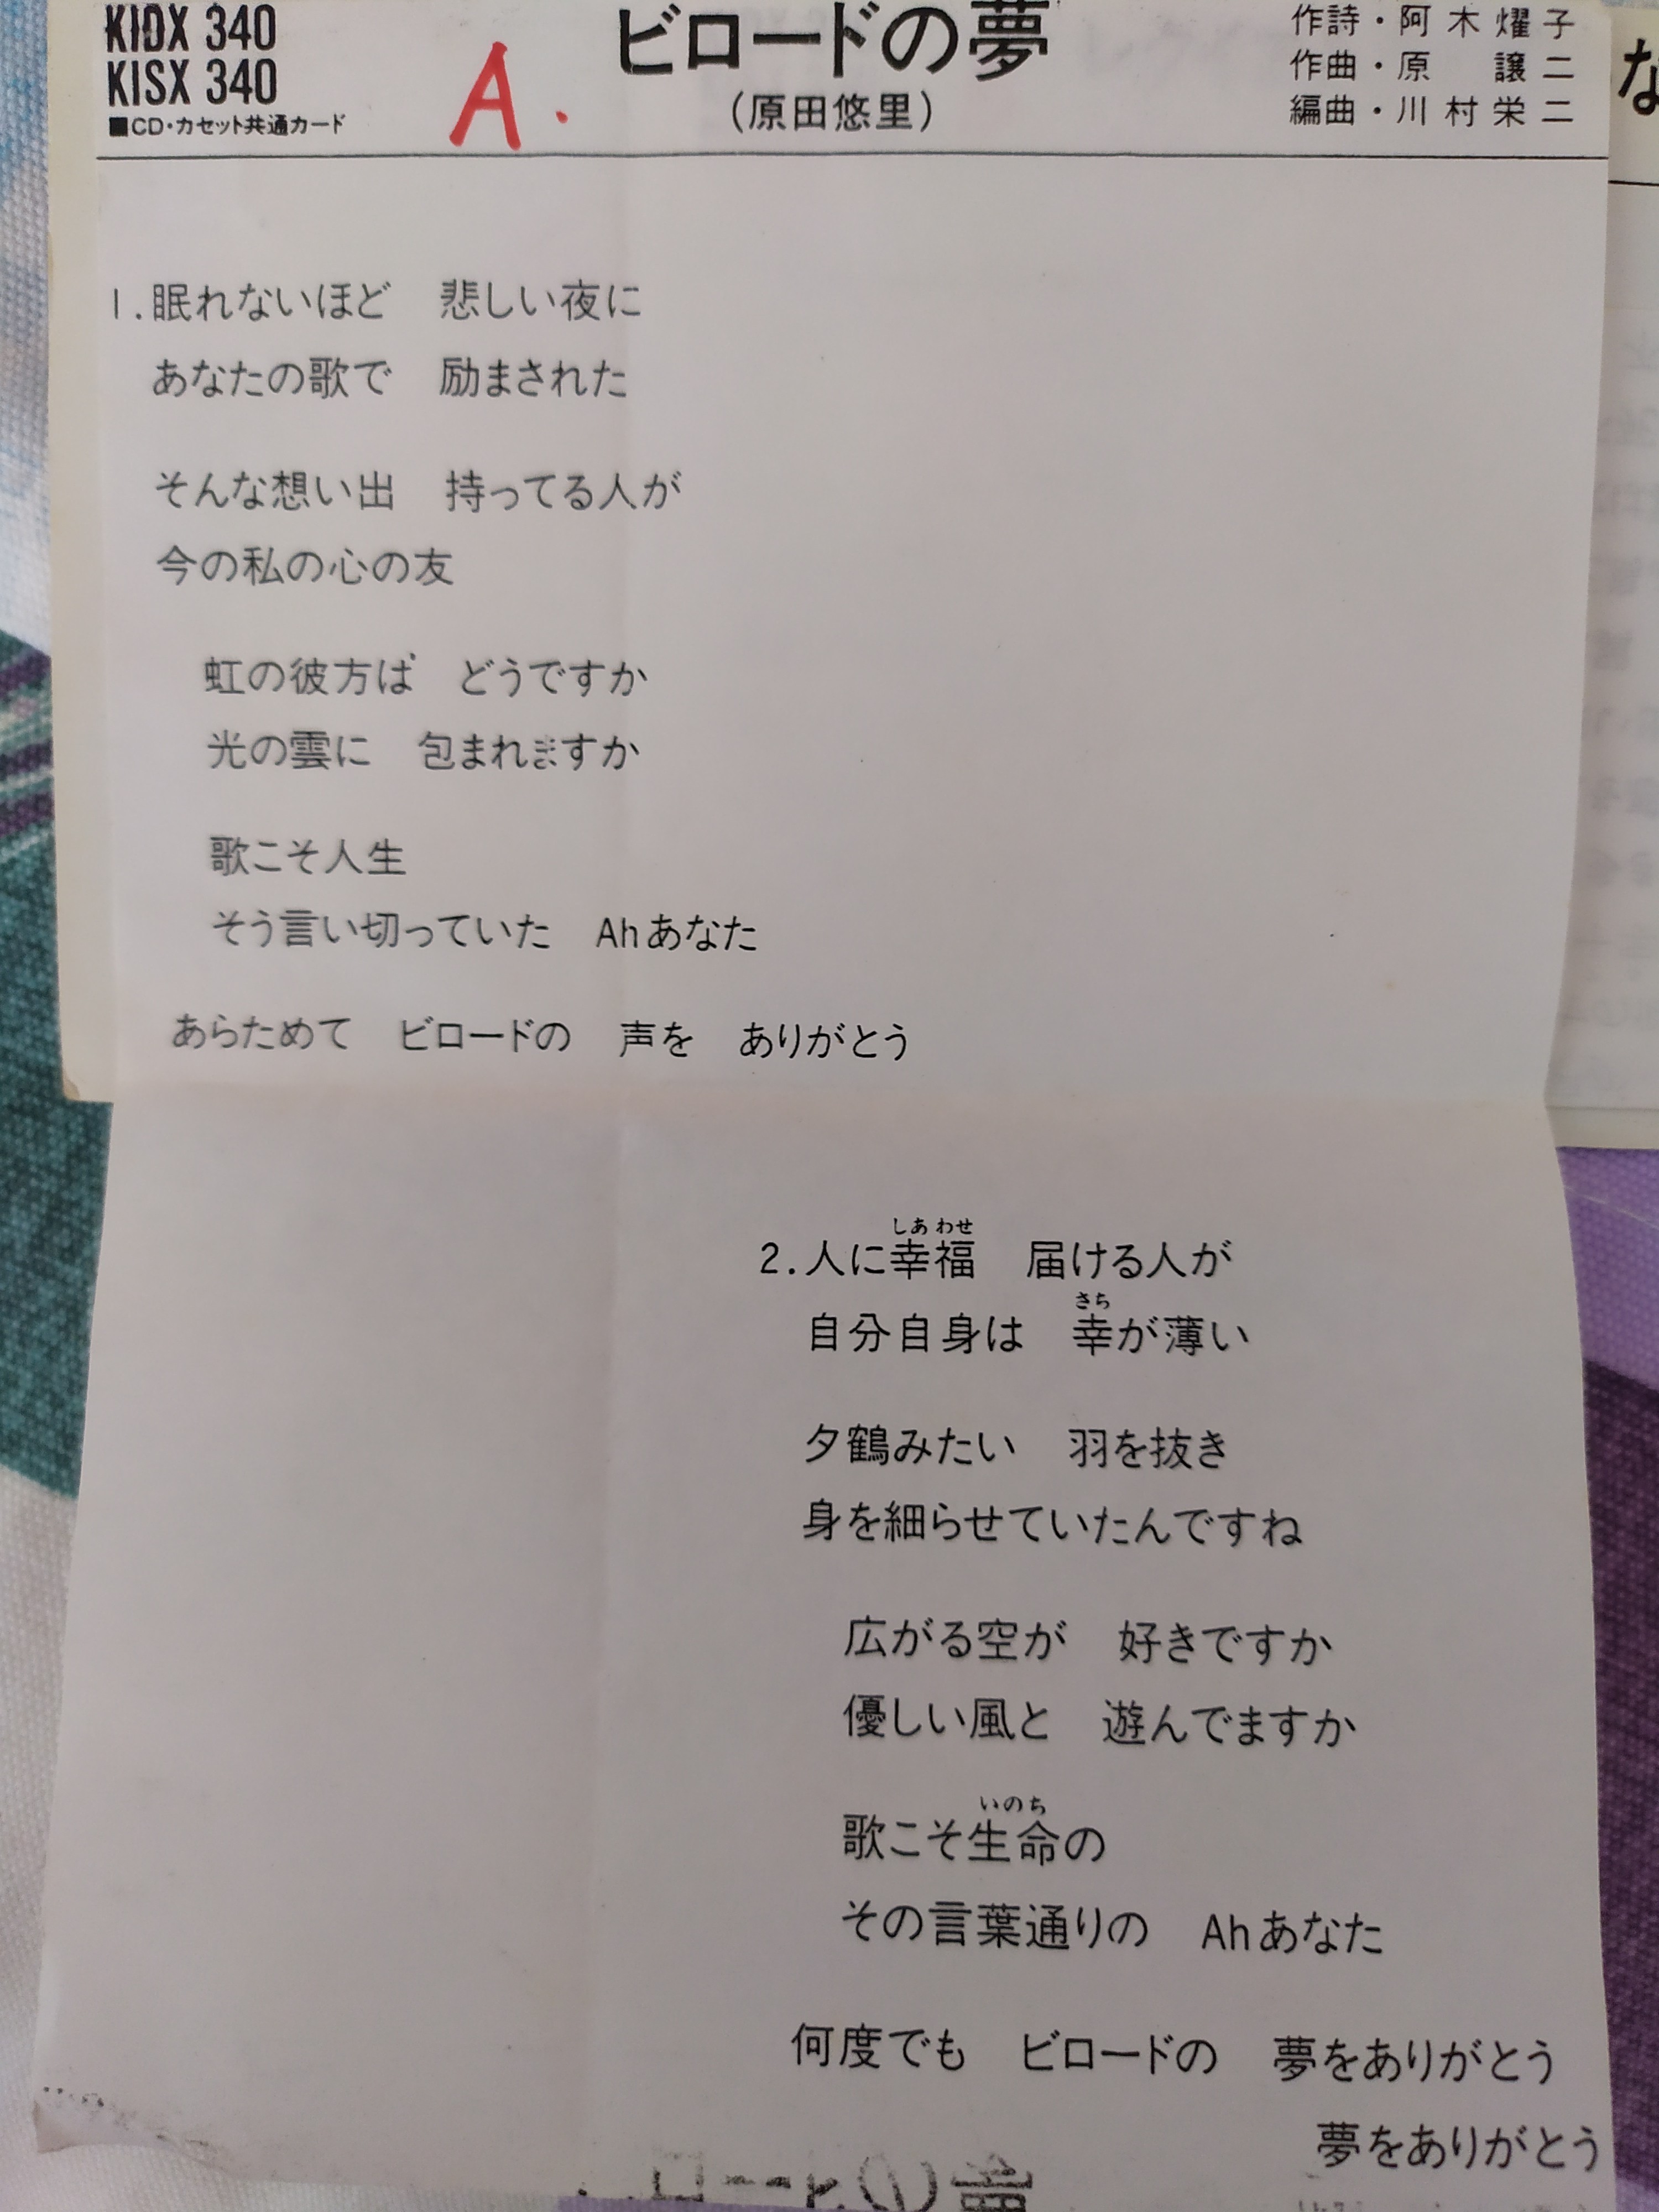 KIDX 340
KISX 340
■CD・カセット共通カード
A.
ビロードの夢
(原田悠里)
作詩・阿木燿子
作曲・原 譲二
編曲・川村栄二
な
1.眠れないほど 悲しい夜に
あなたの歌で 励まされた
そんな想い出 持ってる人が
今の私の心の友
虹の彼方は どうですか
光の雲に 包まれますか
歌こそ人生
そう言い切っていた Ahあなた
あらためて ビロードの 声を ありがとう
しあわせ
2.人に幸福 届ける人が
さち
自分自身は 幸が薄い
夕鶴みたい 羽を抜き
身を細らせていたんですね
広がる空が 好きですか
優しい風と 遊んでますか
いのち
歌こそ生命の
その言葉通りの Ahあなた
何度でも ビロードの 夢をありがとう
夢をありがとう